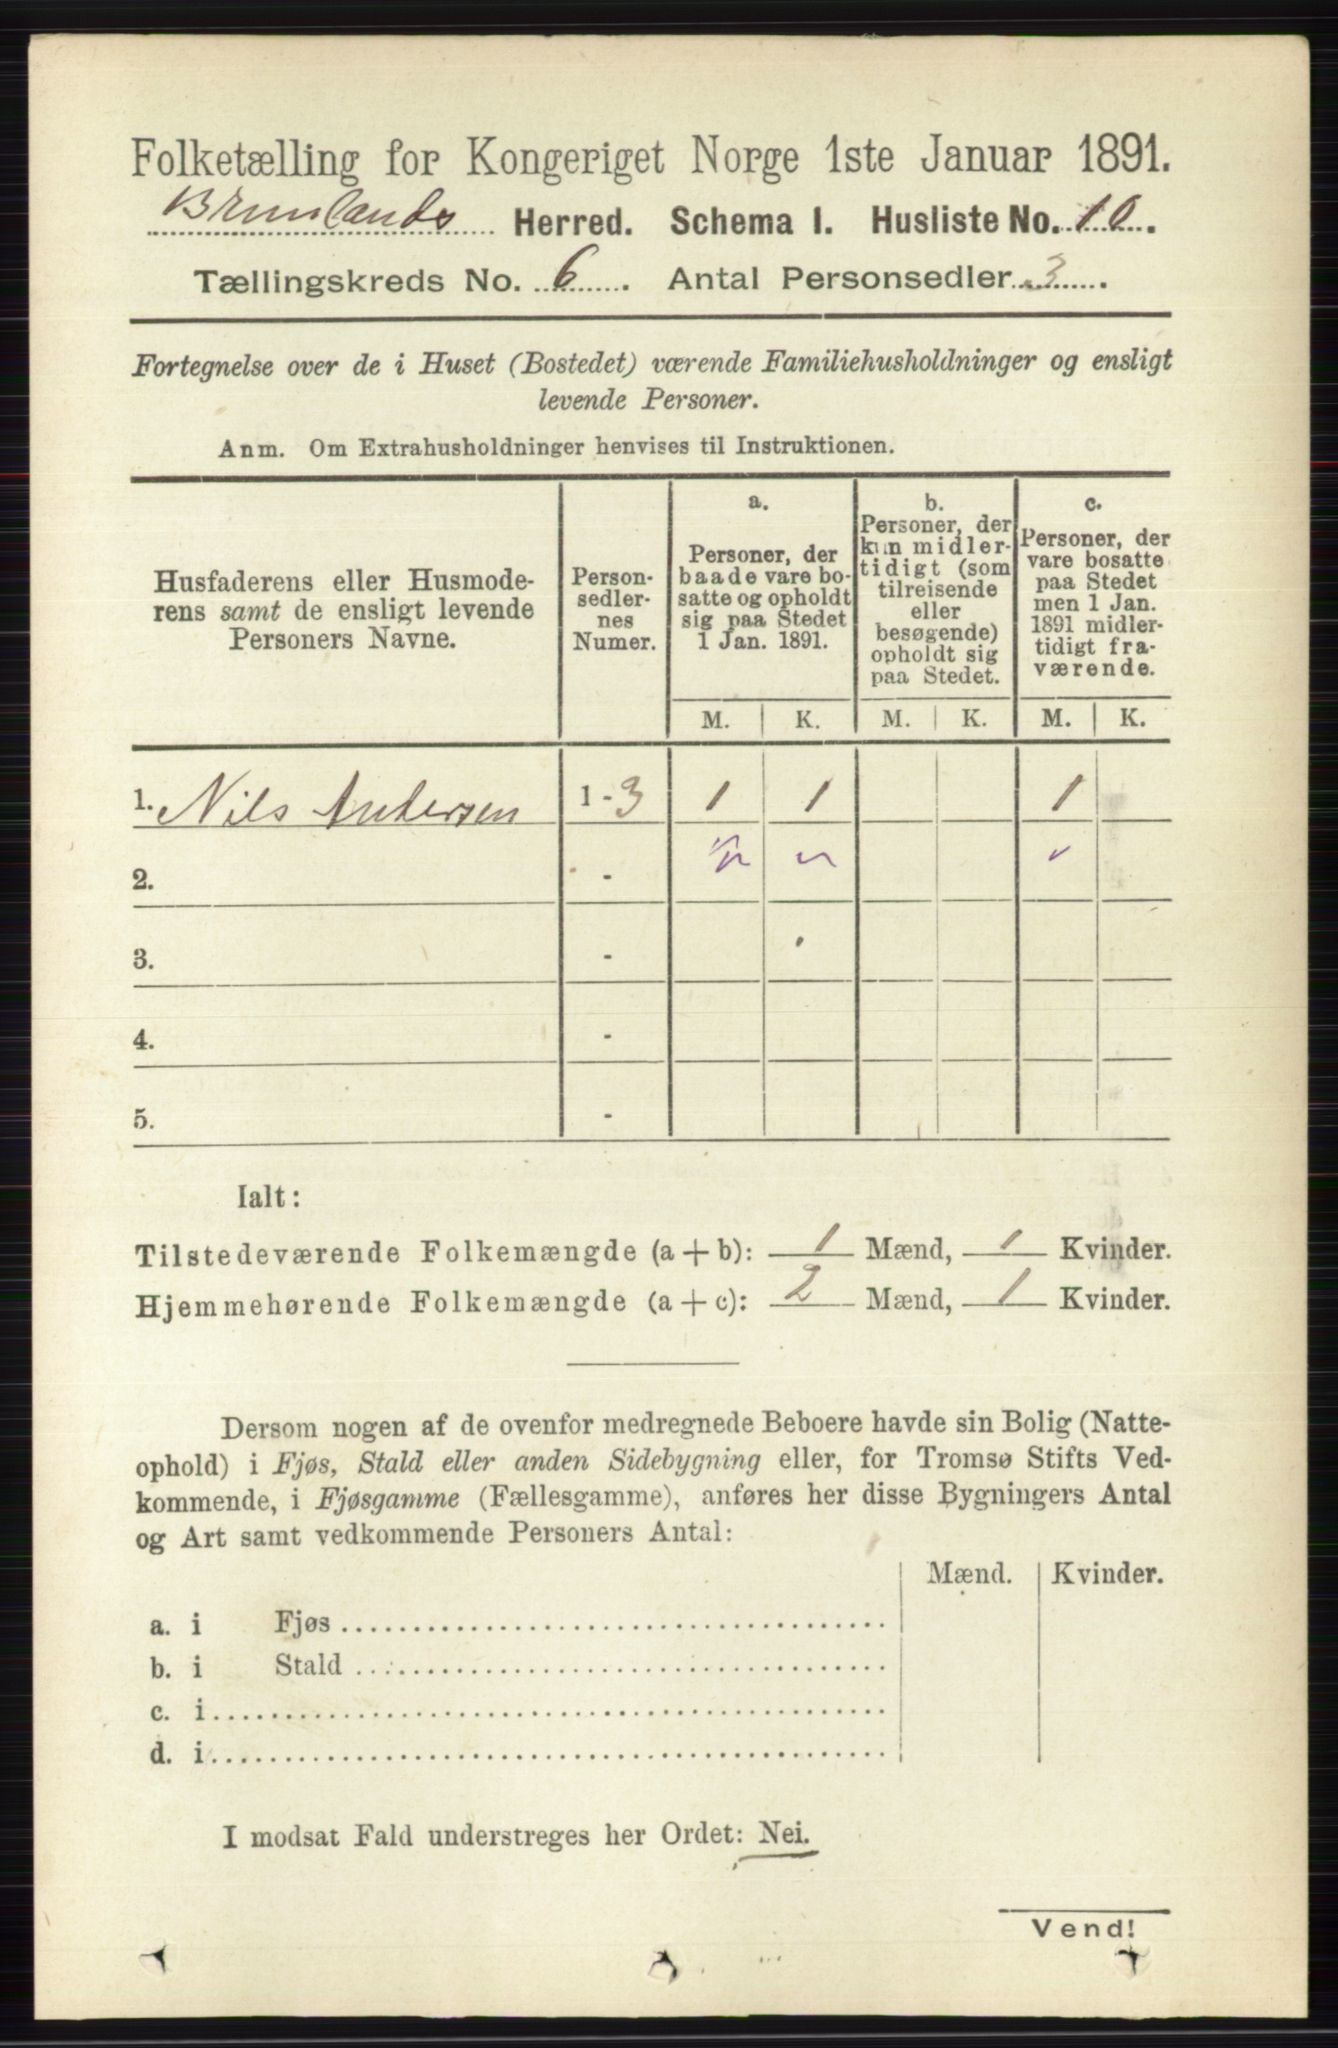 Folketælling for Kongeriget Norge 1ste Januar 1891.
Brunlands Herred. Schema I. Husliste No. 10.
Tællingskreds No. 6. Antal Personsedler 3.
Fortegnelse over de i Huset (Bostedet) værende Familiehusholdninger og ensligt
levende Personer.
Anm. Om Extrahusholdninger henvises til Instruktionen.
Husfaderens eller Husmode-
rens samt de ensligt levende
Personers Navne.
Person-
sedler-
nes
Numer.
a.
Personer, der
baade vare bo-
satte og opholdt
sig paa Stedet
1 Jan. 1891.
b.
Personer, der
kun midler-
tidigt (som
tilreisende
eller
besøgende)
opholdt sig
paa Stedet.
c.
Personer, der
vare bosatte
paa Stedet
men 1 Jan.
1891 midler-
tidigt fra-
værende.
M. K. M. K. M. K.
1. Nils Andersen 1 - 3 1 1 1
2. -
3. -
4. -
5. -
Ialt:
Tilstedeværende Folkemængde (a + b): 1 Mænd, 1 Kvinder.
Hjemmehørende Folkemængde (a + c): 2 Mænd, 1 Kvinder.
Dersom nogen af de ovenfor medregnede Beboere havde sin Bolig (Natte-
ophold) i Fjøs, Stald eller anden Sidebygning eller, for Tromsø Stifts Ved-
kommende, i Fjøsgamme (Fællesgamme), anføres her disse Bygningers Antal
og Art samt vedkommende Personers Antal:
Mænd. Kvinder.
a. i Fjøs
b. i Stald
c. i
d. i
I modsat Fald understreges her Ordet: Nei.
Vend!